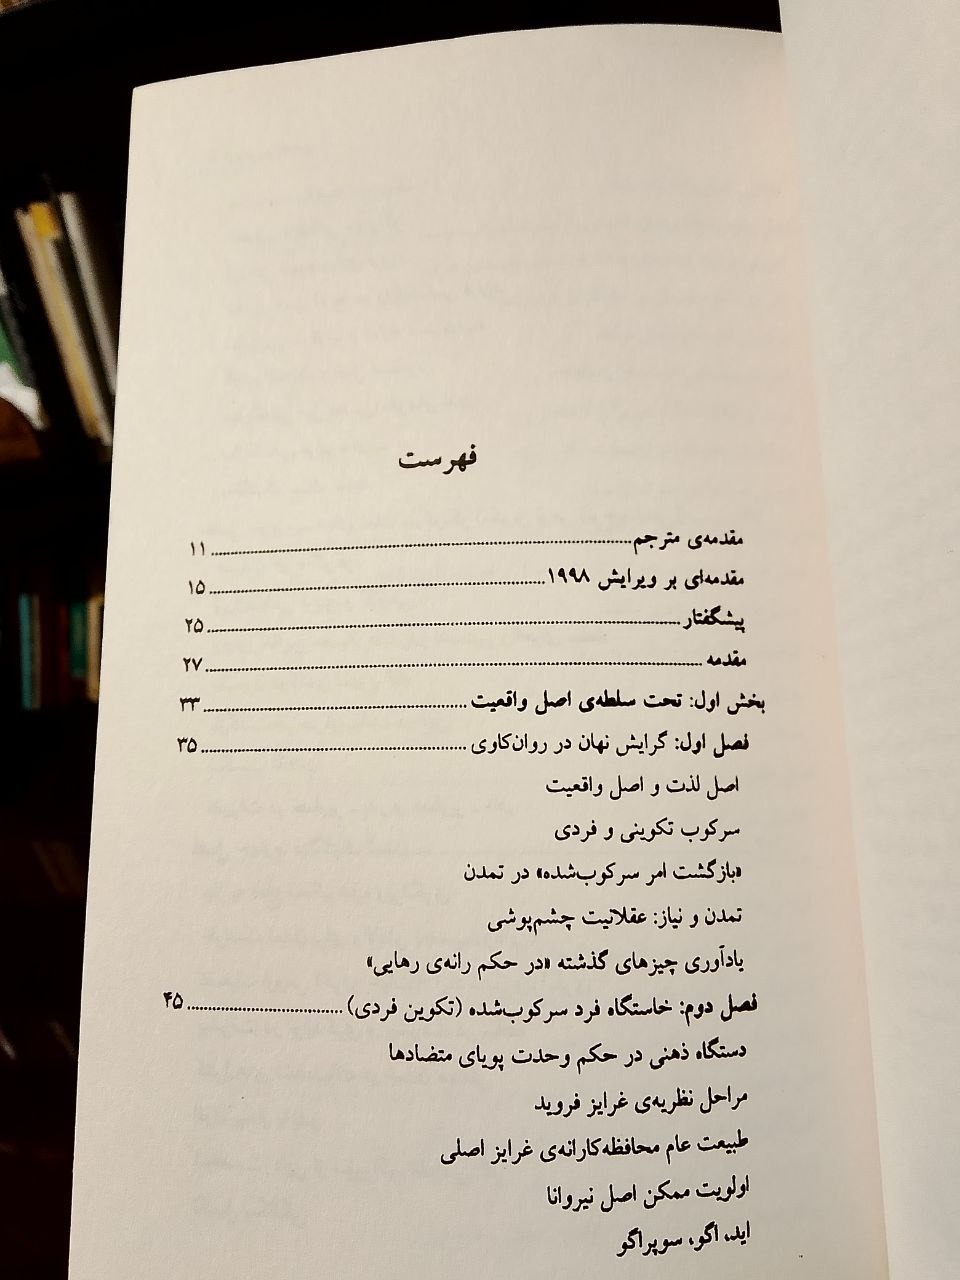 فهرست
مقدمه‌ی مترجم ۱۱
مقدمه‌ای بر ویرایش ۱۹۹۸ ۱۵
پیشگفتار ۲۵
مقدمه ۲۷
بخش اول: تحت سلطه‌ی اصل واقعیت ۳۳
فصل اول: گرایش نهان در روان‌کاوی ۳۵
اصل لذت و اصل واقعیت
سرکوب تکوینی و فردی
«بازگشت امر سرکوب‌شده» در تمدن
تمدن و نیاز: عقلانیت چشم‌پوشی
یادآوری چیزهای گذشته «در حکم رانه‌ی رهایی»
فصل دوم: خاستگاه فرد سرکوب‌شده (تکوین فردی) ۴۵
دستگاه ذهنی در حکم وحدت پویای متضادها
مراحل نظریه‌ی غرایز فروید
طبیعت عام محافظه‌کارانه‌ی غرایز اصلی
اولویت ممکن اصل نیروانا
اید، اگو، سوپراگو